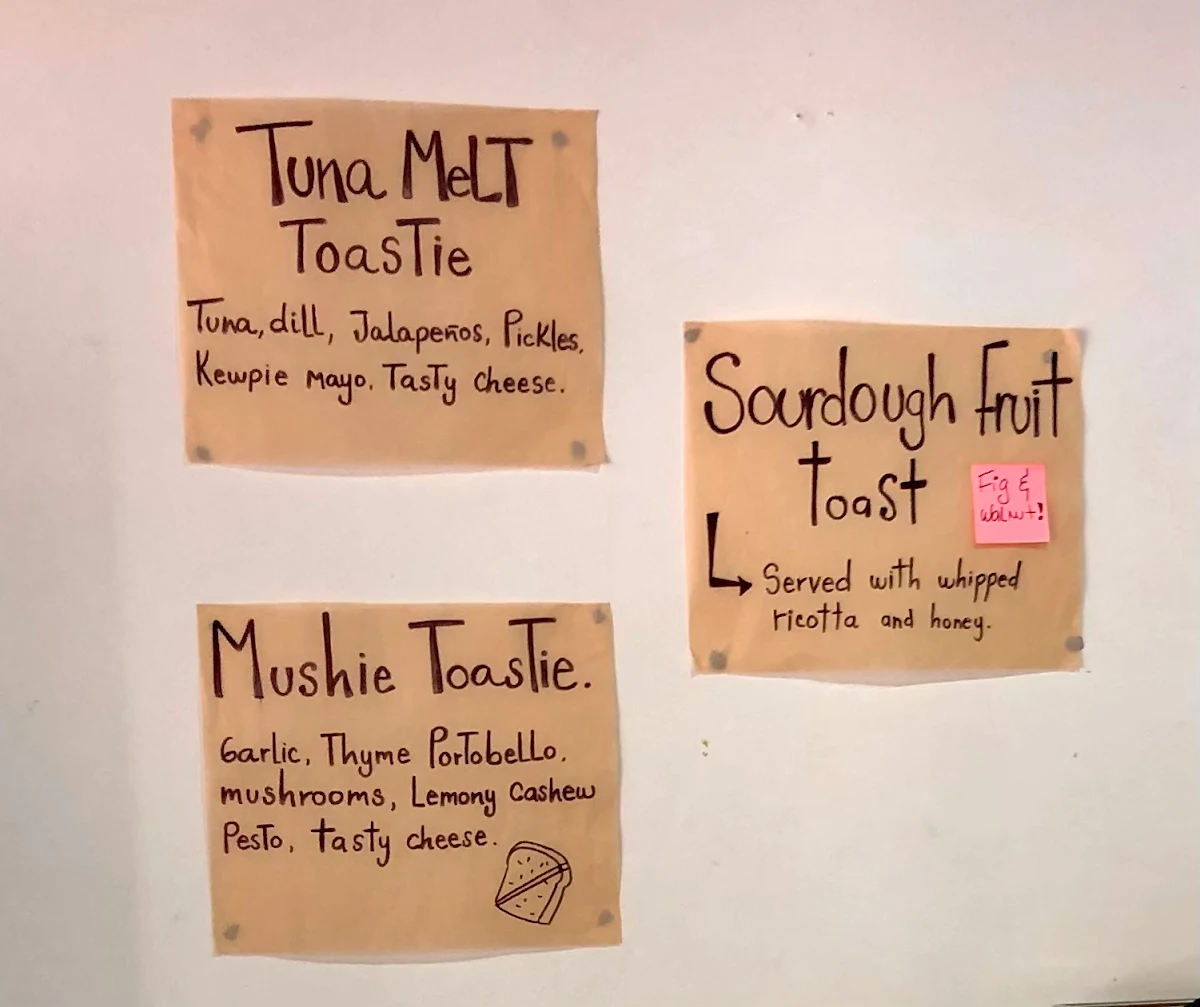 Tuna MeLT
ToasTie
Tuna, dill, Jalapeños, Pickles,
Kewpie Mayo. TasTy cheese.
Mushie ToasTie.
Garlic, Thyme PorTobeLLo.
mushrooms, Lemony Cashew
PesTo, tasty cheese.
Sourdough Fruit
toast
Fig &
walnut!
Served with whipped
ricotta and honey.